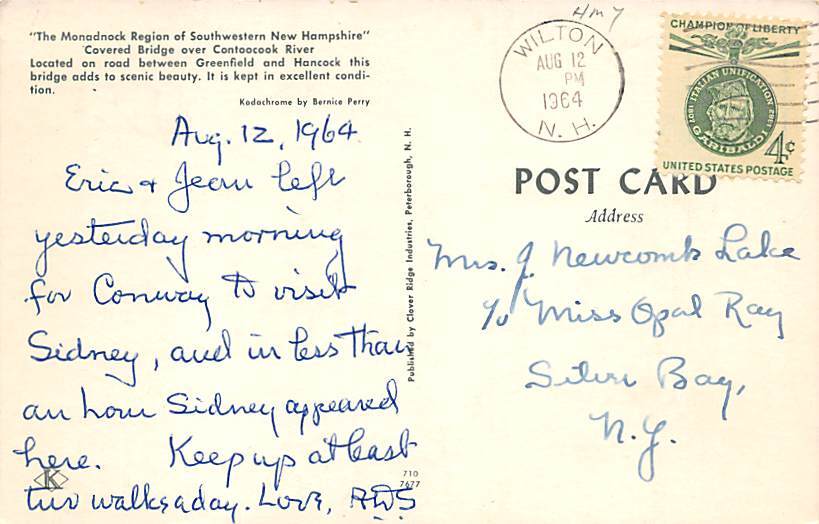 "The Monadnock Region of Southwestern New Hampshire"
Covered Bridge over Contoocook River
Located on road between Greenfield and Hancock this
bridge adds to scenic beauty. It is kept in excellent condi-
tion.
Kodachrome by Bernice Perry
Aug. 12, 1964
Eric & Jean left
yesterday morning
for Conway to visit
Sidney, and in less than
an hour Sidney appeared
here. Keep up at least
two walks a day. Love, AWS
K
Published by Clover Ridge Industries, Peterborough, N. H.
710
7677
WILTON
AUG 12
PM
1964
N. H.
CHAMPION OF LIBERTY
ITALIAN UNIFICATION
1807 1882
GARIBALDI
4¢
UNITED STATES POSTAGE
POST CARD
Address
Mrs. J. Newcomb Lake
c/o Miss Opal Ray
Silver Bay,
N.Y.